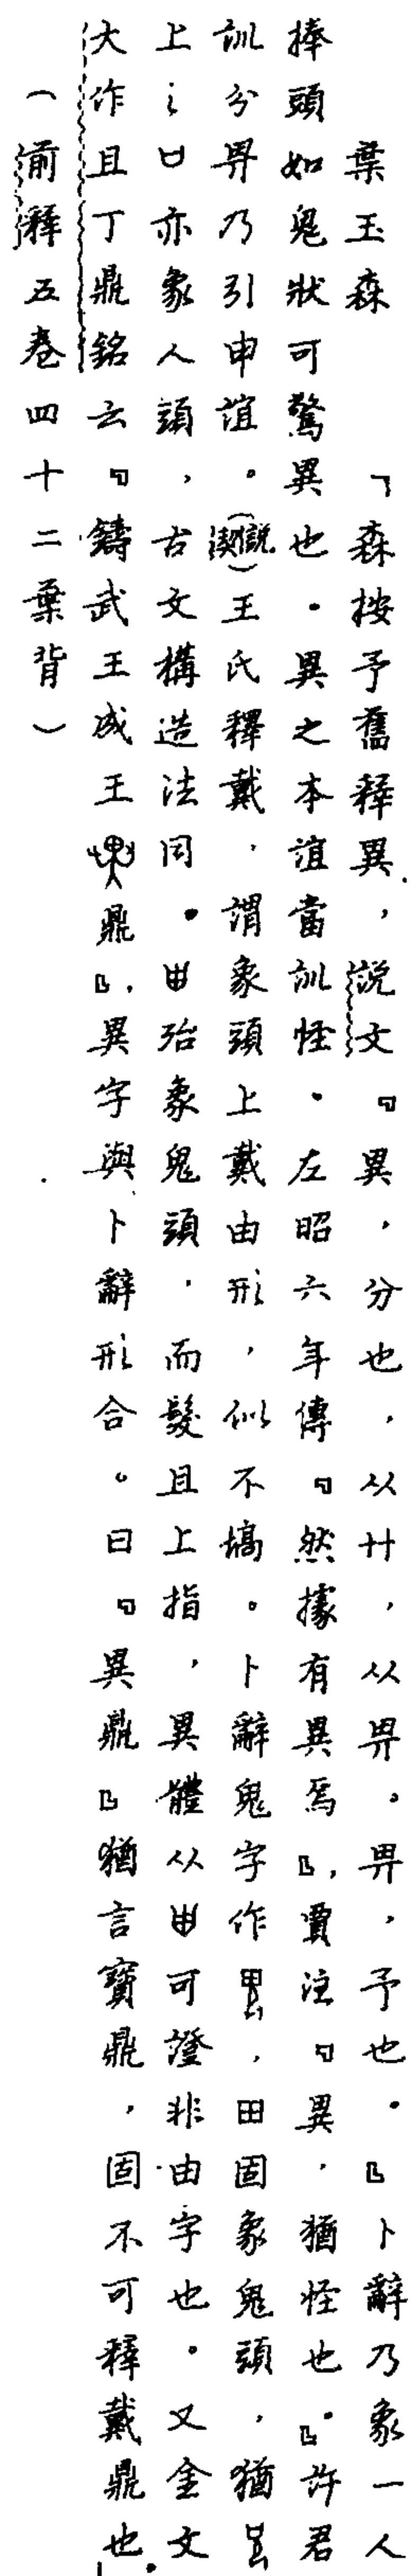 葉玉森　「森按予舊釋異，説文『異，分也，从廾，从畀。畀，予也。』卜辭乃象一人
捧頭如鬼狀可驚異也。異之本誼當訓怪。左昭六年傳『然據有異焉』，賈注『異，猶怪也。』許君
訓分畀乃引申誼。（説契）王氏釋戴，謂象頭上戴由形，似不塙。卜辭鬼字作，田固象鬼頭，猶
上之口亦象人頭，古文構造法同。殆象鬼頭，而髮且上指，異體从可證非由字也。又金文
大作且丁鼎銘云『鑄武王成王鼎』，異字與卜辭形合。曰『異鼎』猶言寶鼎，固不可釋戴鼎也。」
（前釋五卷四十二葉背）